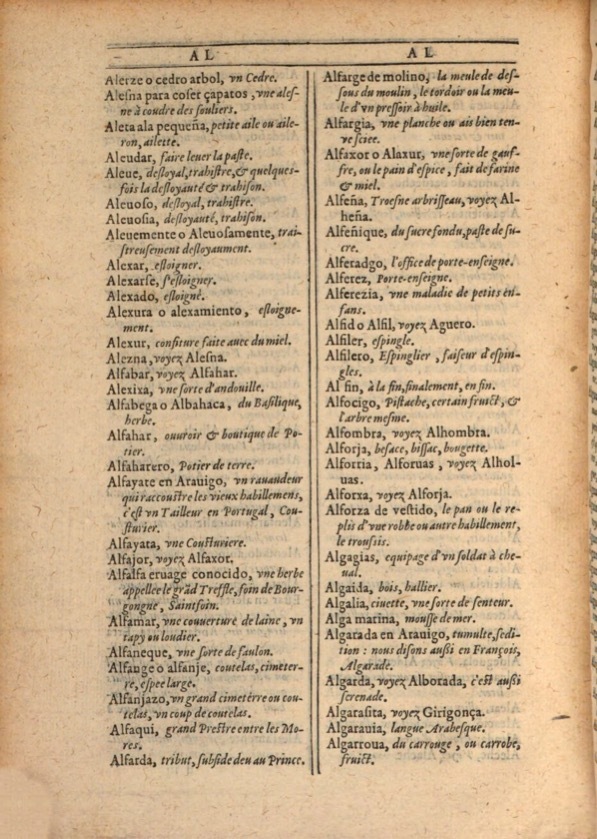 AL
Alerze o cedro arbol, vn Cedre.
Alesna para coser çapatos, vne ales-
ne à coudre des souliers.
Aleta ala pequeña, petite aile ou aile-
ron, ailette.
Aleudar, faire leuer la paste.
Aleue, desloyal, trahistre, & quelques-
fois la desloyauté & trahison.
Aleuoso, desloyal, trahistre.
Aleuosia, desloyauté, trahison.
Aleuemente o Aleuosamente, trai-
streusement desloyaument.
Alexar, esloigner.
Alexarse, s'esloigner.
Alexado, esloigné.
Alexura o alexamiento, esloigue-
ment.
Alexur, confiture faite auec du miel.
Alezna, voyez Alesna.
Alfabar, voyez Alfahar.
Alexixa, vne sorte d'andouille.
Alfabega o Albahaca, du Basilique,
herbe.
Alfahar, ouuroir & boutique de Po-
tier.
Alfaharero, Potier de terre.
Alfayate en Arauigo, vn rauaudeur
qui raccoustre les vieux habillemens,
c'est vn Tailleur en Portugal, Cou-
sturier.
Alfayata, vne Cousturiere.
Alfajor, voyez Alfaxor.
Alfalfa eruage conocido, vne herbe
appellee le grãd Treffle, foin de Bour-
gongne, Saintfoin.
Alfamar, vne couuerture de laine, vn
tapy ou loudier.
Alfaneque, vne sorte de faulon.
Alfange o alfanje, coutelas, cimeter-
re, espee large.
Alfanjazo, vn grand cimeterre ou cou-
telas, vn coup de coutelas.
Alfaqui, grand Prestre entre les Mo-
res.
Alfarda, tribut, subside deu au Prince.
AL
Alfarge de molino, la meule de des-
sous du moulin, le tordoir ou la meu-
le d'vn pressoir à huile.
Alfargia, vne planche ou ais bien ten-
ve sciee.
Alfaxor o Alaxur, vne sorte de gauf-
fre, ou le pain d'espice, fait de farine
& miel.
Alfeña, Troesne arbrisseau, voyez Al-
heña.
Alfeñique, du sucre fondu, paste de su-
cre.
Alferadgo, l'office de porte-enseigne.
Alferez, Porte-enseigne.
Alferezia, vne maladie de petits en-
fans.
Alfid o Alfil, voyez Aguero.
Alfiler, espingle.
Alfilero, Espinglier, faiseur d'espin-
gles.
Al fin, à la fin, finalement, en fin.
Alfocigo, Pistache, certain fruict, &
l'arbre mesme.
Alfombra, voyez Alhombra.
Alforja, besace, bissac, bougette.
Alforria, Alforuas, voyez Alhol-
uas.
Alforxa, voyez Alforja.
Alforza de vestido, le pan ou le re-
plis d'vue robbe ou autre habillement,
le troussis.
Algagias, equipage d'vn soldat à che-
ual.
Algaida, bois, hallier.
Algalia, ciuette, vne sorte de senteur.
Alga marina, mousse de mer.
Algarada en Arauigo, tumulte, sedi-
tion : nous disons aussi en François,
Algarade.
Algarda, voyez Alborada, c'est aussi
serenade.
Algarasita, voyez Girigonça.
Algarauia, langue Arabesque.
Algarroua, du carrouge, ou carrobe,
fruict.